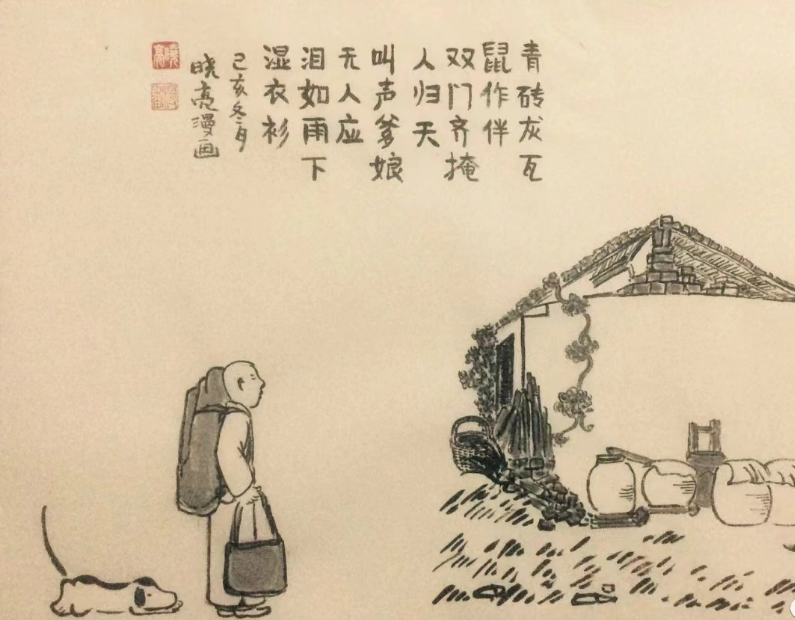 青砖灰瓦
鼠作伴
双门齐掩
人归天
叫声爹娘
无人应
泪如雨下
湿衣衫
己亥冬月
晓亮漫画